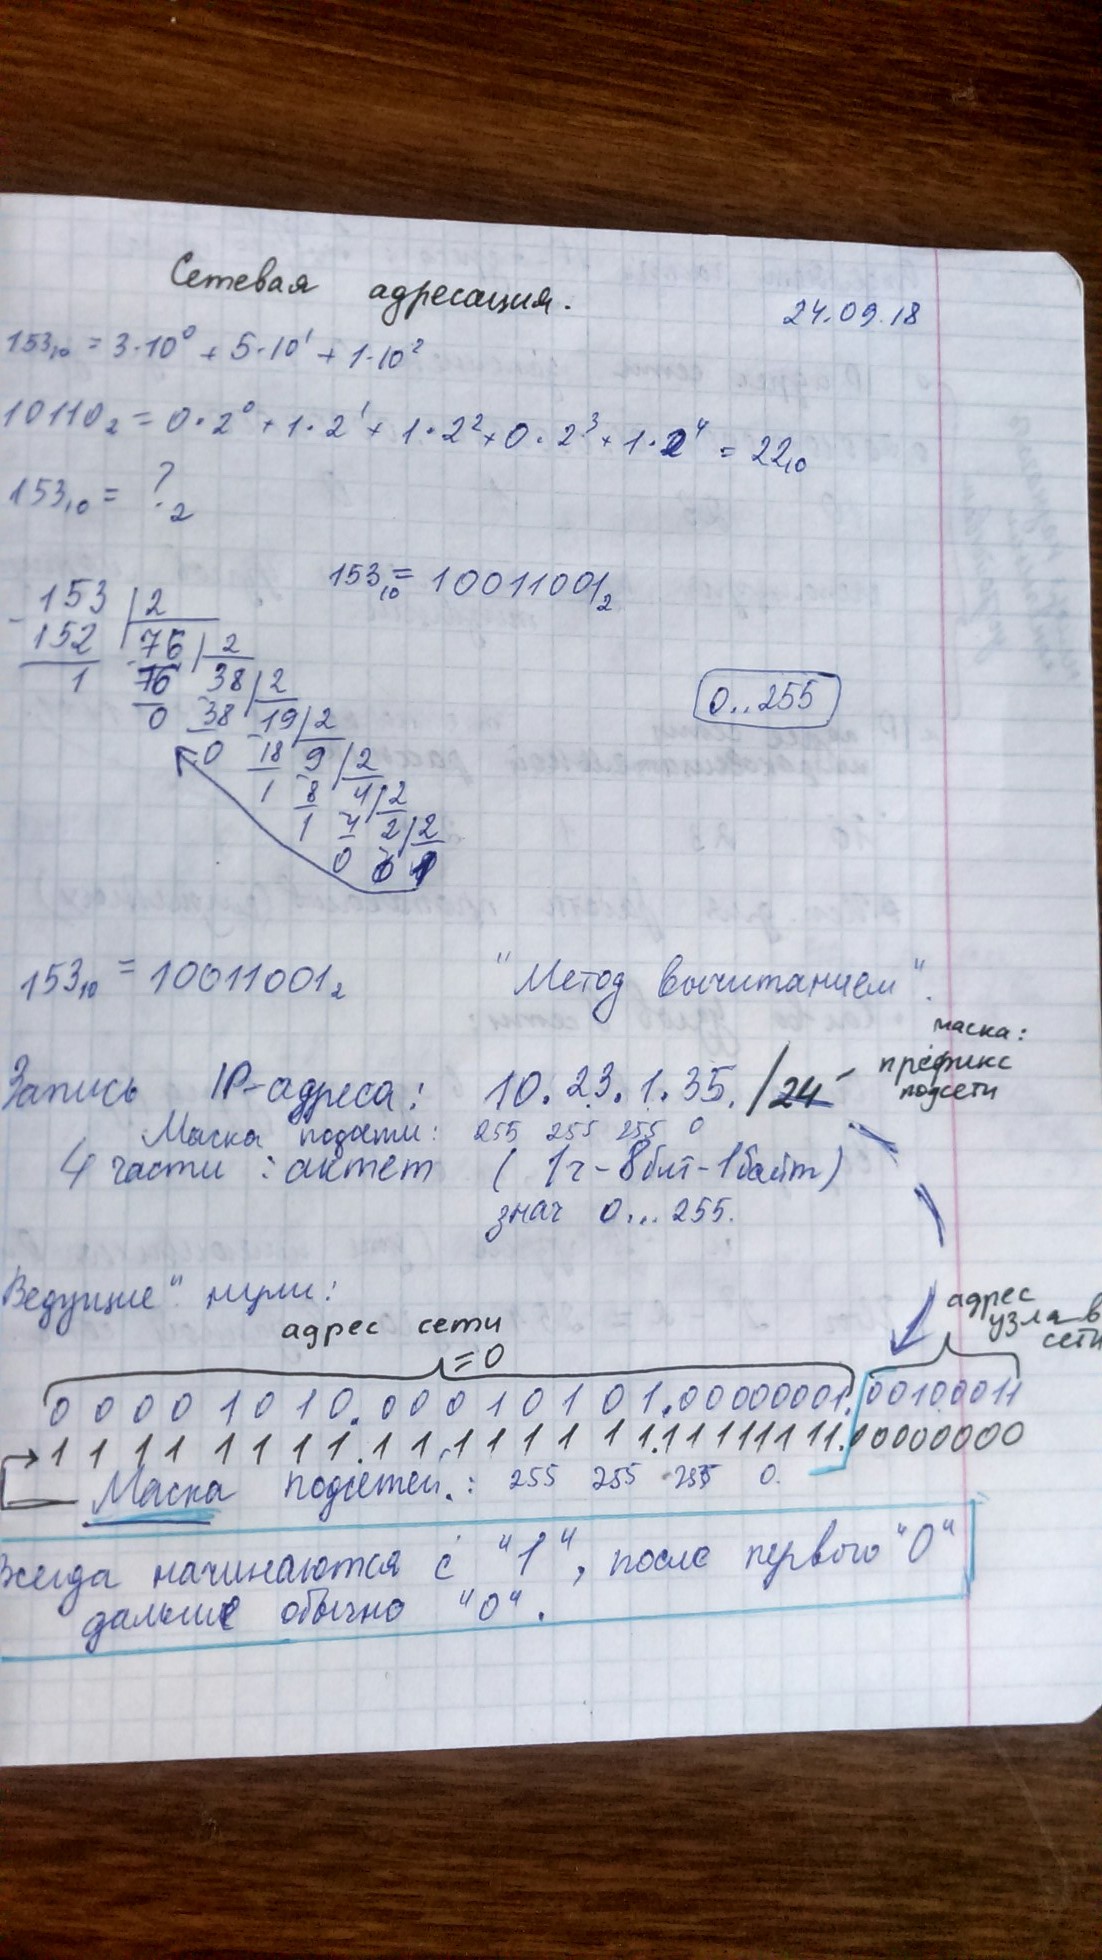 Сетевая адресация.
24.09.18
153₁₀ = 3·10⁰ + 5·10¹ + 1·10²
10110₂ = 0·2⁰ + 1·2¹ + 1·2² + 0·2³ + 1·2⁴ = 22₁₀
153₁₀ = ?₂
153₁₀ = 10011001₂
153 | 2
152 76 | 2
1 76 38 | 2
0 38 19 | 2
0 18 9 | 2
1 8 4 | 2
1 4 2 | 2
0 0 1
0..255
153₁₀ = 10011001₂ "Метод вычитанием".
маска:
Запись IP-адреса: 10.23.1.35. /24 - префикс
подсети
Маска подсети: 255 255 255 0
4 части : актет (1ч-8бит-1байт)
знач 0...255.
Ведущие" нули:
адрес сети
= 0
адрес
узла в
сети
0 0 0 0 1 0 1 0. 0 0 0 1 0 1 0 1.00000001.00100011
1 1 1 1 1 1 1 1.1 1 1 1 1 1 1 1.11111111.00000000
Маска подсетей.: 255 255 255 0.
Всегда начинаются с "1", после первого "0"
дальше обычно "0".